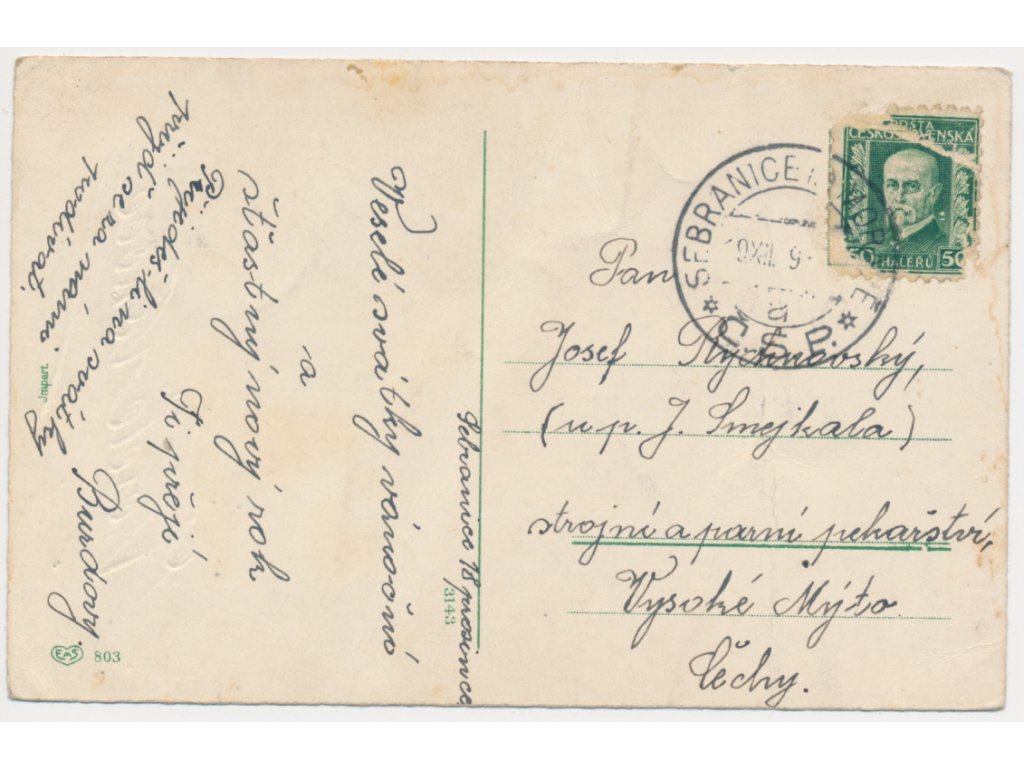 Veselé svátky vánoční
a
šťastný nový rok
Ti přejí
Burdovy.
Přijdeš-li na svátky
přijď se na mámo i
podívat.
Sebranice 18 prosince
3143
Jmport
EMS 803
POSTA
ČESKOSLOVENSKÁ
50 HALÉŘŮ 50
SEBRANICE
Č.S.P.
Pan
Josef Rychnovský,
(u p. J. Smejkala)
strojní a parní pekařství,
Vysoké Mýto
Čechy.